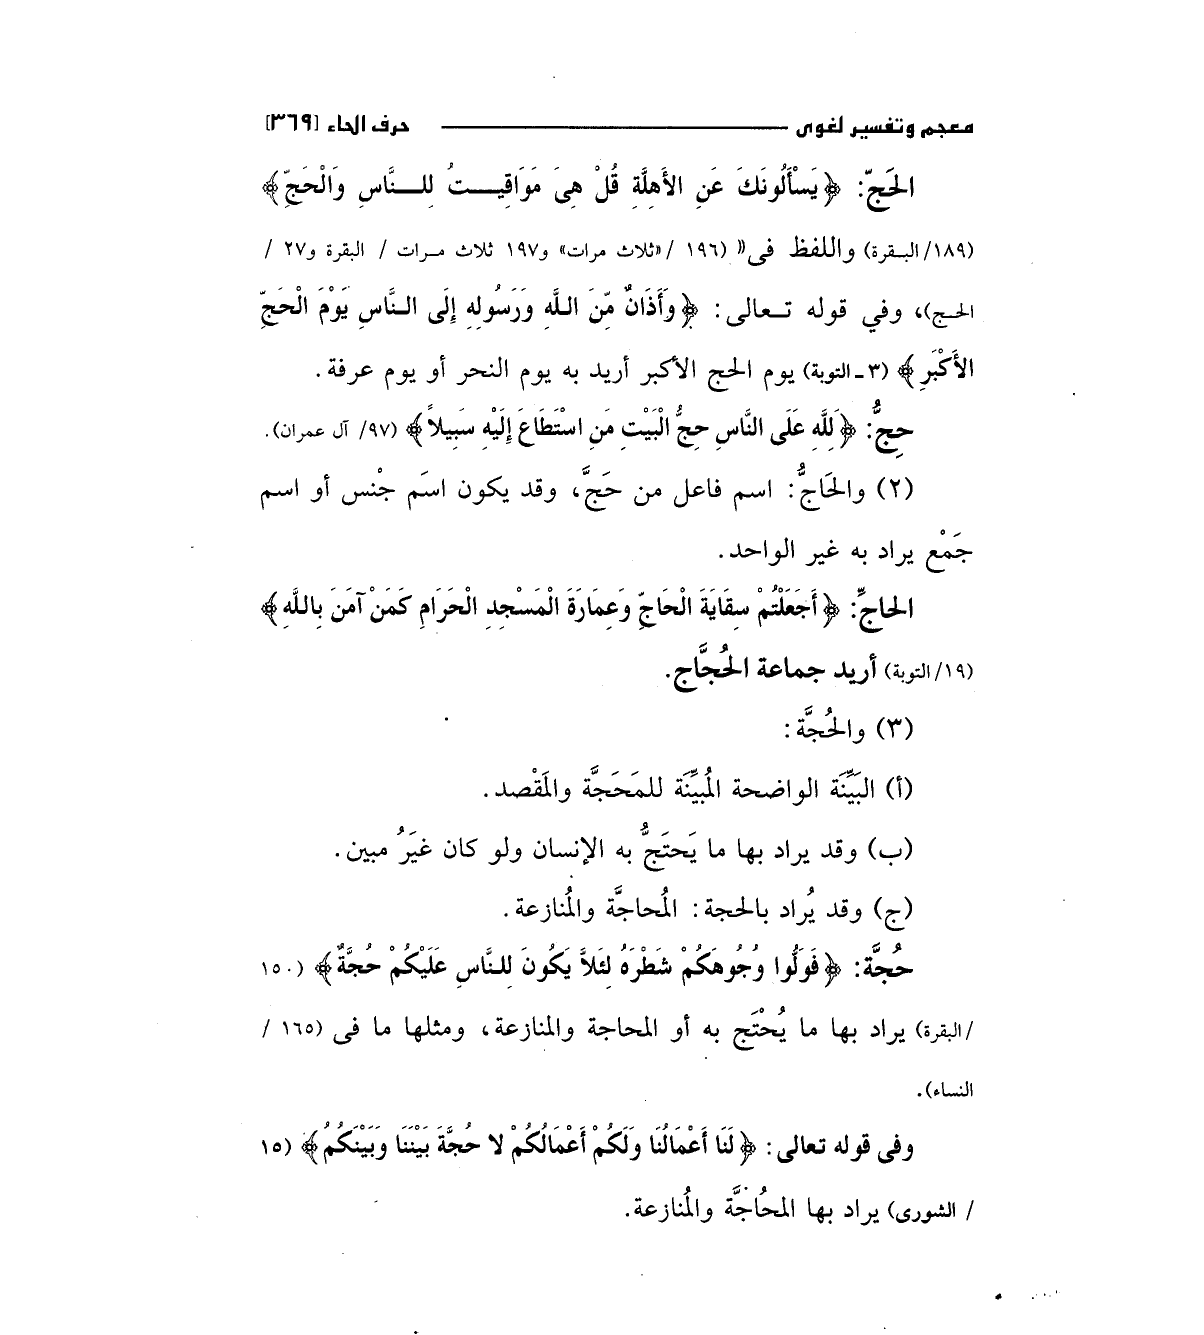 معجم وتفسير لغوى حرف الحاء [٣٦٩]
الحَجّ: ﴿يَسْأَلُونَكَ عَنِ الأَهِلَّةِ قُلْ هِىَ مَوَاقِيتُ لِلنَّاسِ وَالْحَجِّ﴾
(١٨٩/ البقرة) واللفظ فى « (١٩٦ /«ثلاث مرات» و١٩٧ ثلاث مرات / البقرة و٢٧ /
الحج)، وفي قوله تعالى: ﴿وَأَذَانٌ مِّنَ اللَّهِ وَرَسُولِهِ إِلَى النَّاسِ يَوْمَ الْحَجِّ
الأَكْبَرِ﴾ (٣ ـ التوبة) يوم الحج الأكبر أريد به يوم النحر أو يوم عرفة.
حِجُّ: ﴿لِلَّهِ عَلَى النَّاسِ حِجُّ الْبَيْتِ مَنِ اسْتَطَاعَ إِلَيْهِ سَبِيلاً﴾ (٩٧/ آل عمران).
(٢) والحَاجُّ: اسم فاعل من حَجَّ، وقد يكون اسَم جْنس أو اسم
جَمْع يراد به غير الواحد.
الحاجِّ: ﴿أَجَعَلْتُمْ سِقَايَةَ الْحَاجِّ وَعِمَارَةَ الْمَسْجِدِ الْحَرَامِ كَمَنْ آمَنَ بِاللَّهِ﴾
(١٩/ التوبة) أريد جماعة الحُجَّاج.
(٣) والحُجَّة:
(أ) البَيِّنَة الواضحة المُبيِّنَة للمَحَجَّة والمَقْصد.
(ب) وقد يراد بها ما يَحتَجُّ به الإنسان ولو كان غيَرُ مبين.
(ج) وقد يُراد بالحجة: المُحاجَّة والمُنازعة.
حُجَّة: ﴿فَوَلُّوا وُجُوهَكُمْ شَطْرَهُ لِئَلاَّ يَكُونَ لِلنَّاسِ عَلَيْكُمْ حُجَّةٌ﴾ (١٥٠
/ البقرة) يراد بها ما يُحْتَج به أو المحاجة والمنازعة، ومثلها ما فى (١٦٥ /
النساء).
وفى قوله تعالى: ﴿لَنَا أَعْمَالُنَا وَلَكُمْ أَعْمَالُكُمْ لا حُجَّةَ بَيْنَنَا وَبَيْنَكُمُ﴾ (١٥
/ الشورى) يراد بها المحُاجَّة والمُنازعة.